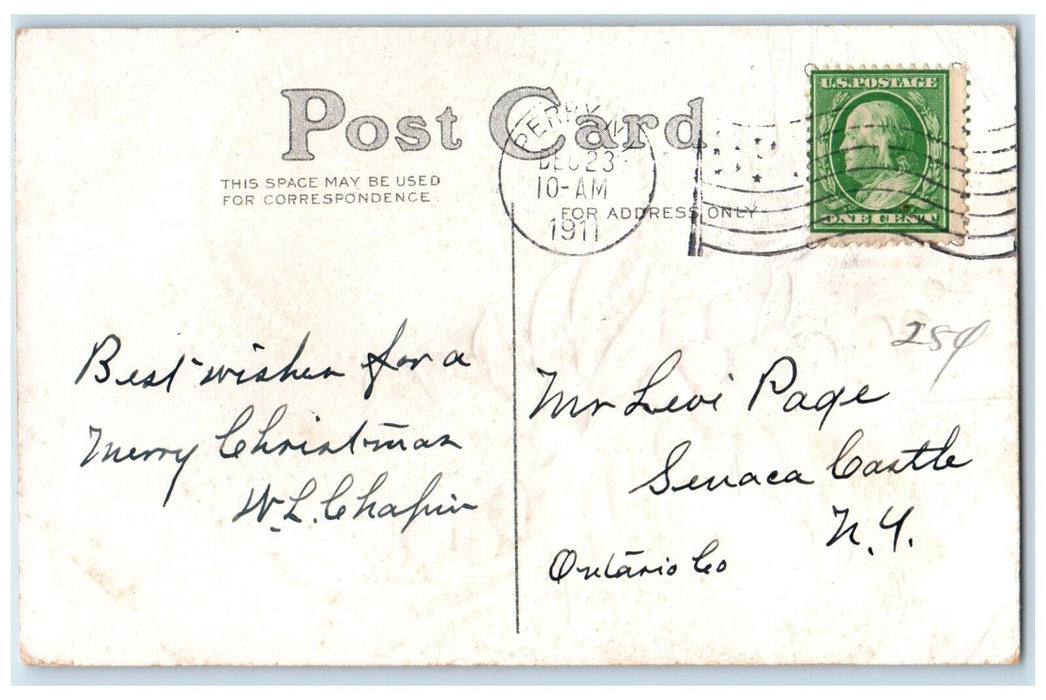 Post Card
THIS SPACE MAY BE USED
FOR CORRESPONDENCE
FOR ADDRESS ONLY
DEC 23
10-AM
1911
U.S. POSTAGE
ONE CENT
Best wishes for a
Merry Christmas
W.L. Chapin
Mr Levi Page
Senaca Castle
N.Y.
Ontario Co